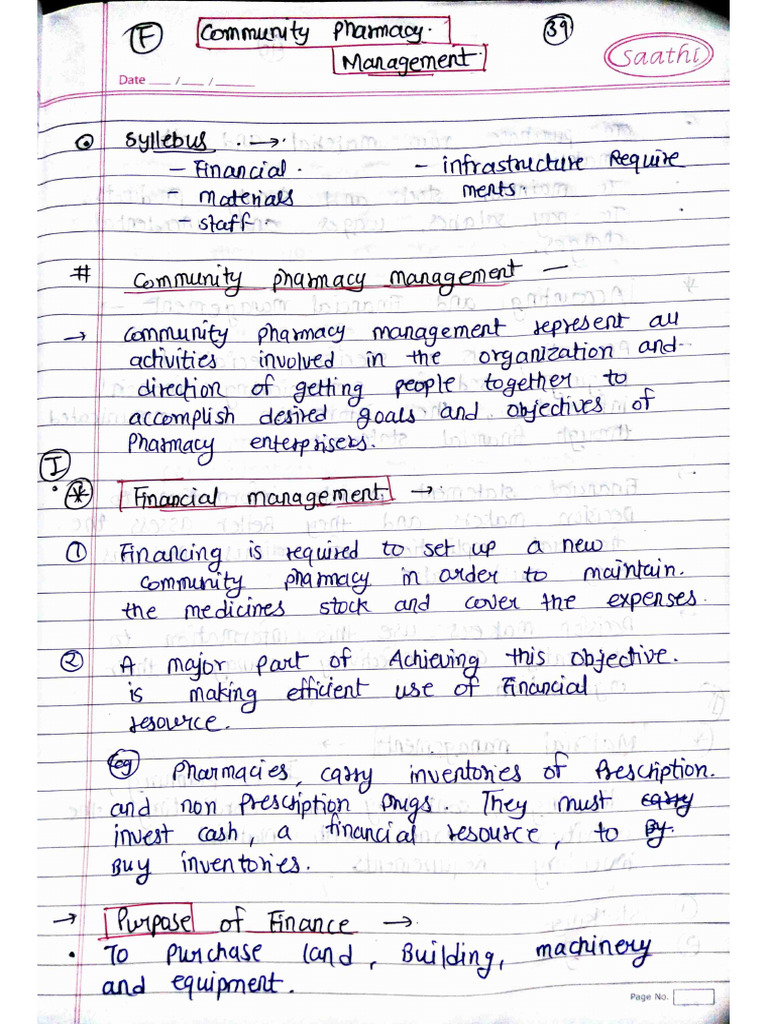 F Community Pharmacy. 39
Management. Saathi
Date ___ / ___ / _____
Syllebus →
- Financial. - infrastructure Require
- materials ments.
- staff.
# Community pharmacy management -
→ Community pharmacy management represent all
activities involved in the organization and
direction of getting people together to
accomplish desired goals and objectives of
Pharmacy enterprisers.
I
Financial management. →
1 Financing is required to set up a new
Community pharmacy in order to maintain.
the medicines stock and cover the expenses.
2 A major part of Achieving this objective.
is making efficient use of Financial
resource.
eg Pharmacies, carry inventories of Prescription.
and non Prescription Drugs. They must carry
invest cash, a financial resource, to By.
Buy inventories.
→ Purpose of Finance →
• To purchase land, Building, machinery
and equipment.
Page No.